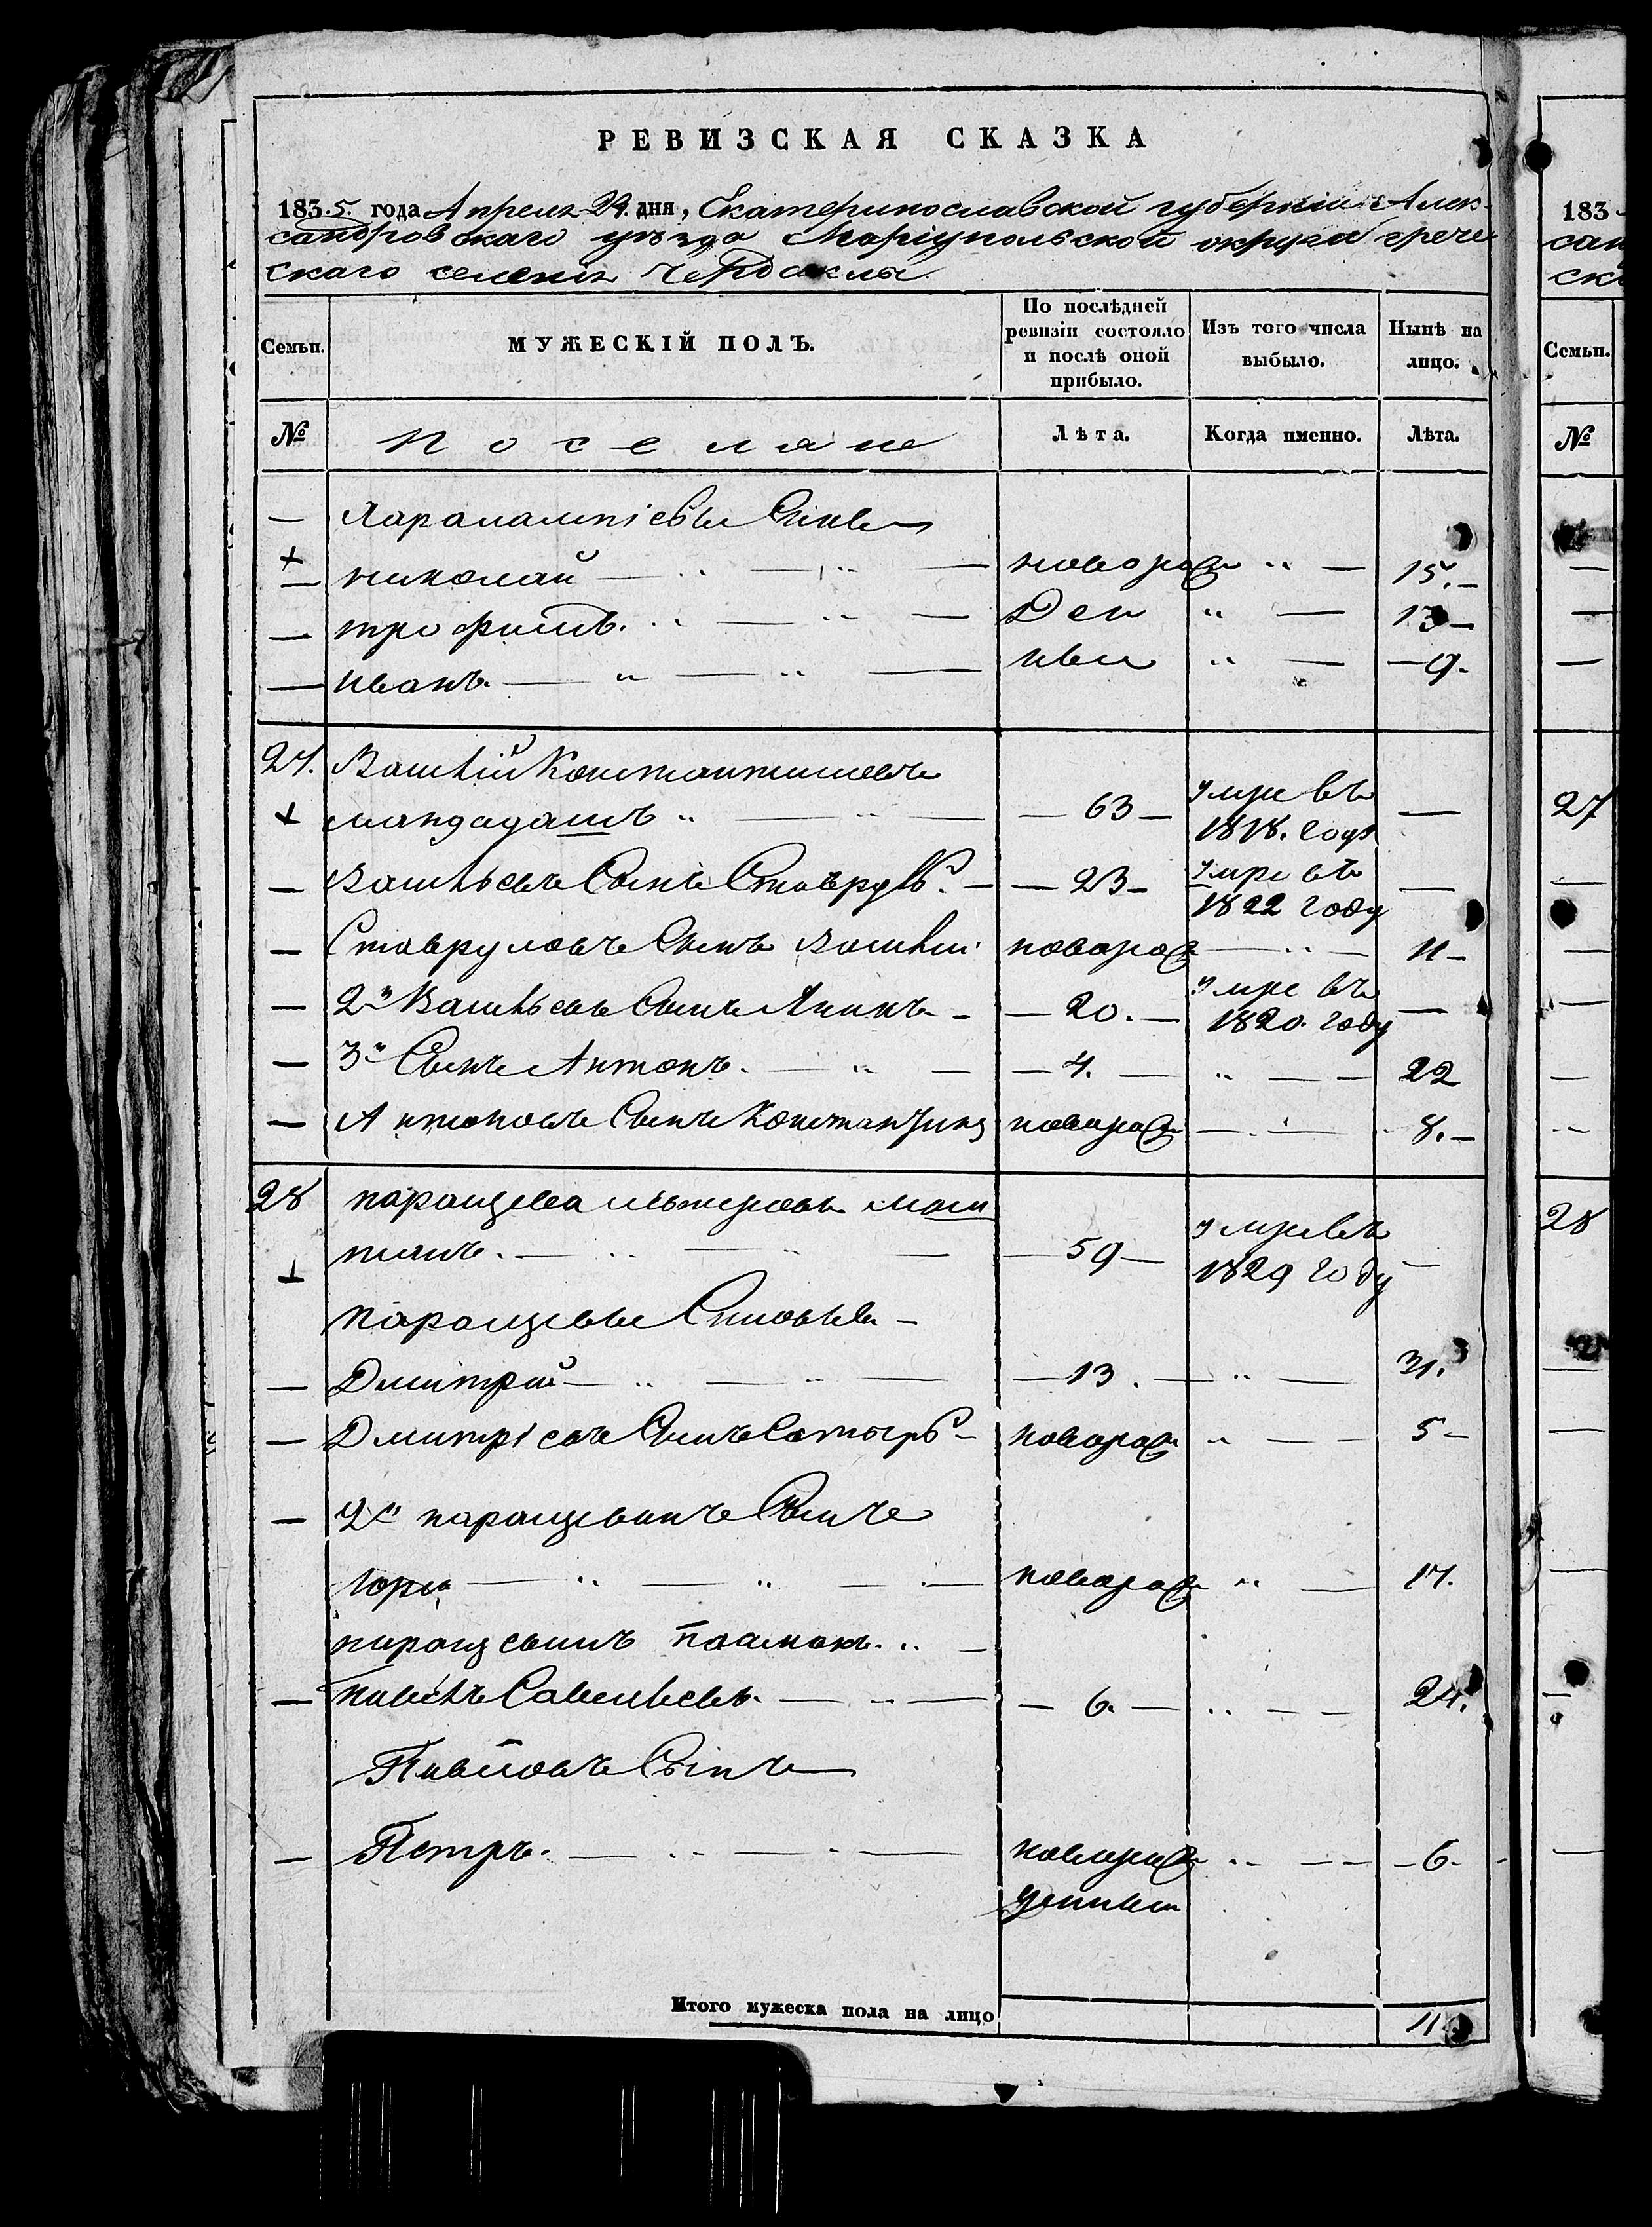 РЕВИЗСКАЯ СКАЗКА
183.5. года Апреля 24. дня, Екатеринославской губерніи Алек-
сандровскаго уѣзда Маріупольской округи грече-
скаго селенія Чердаклы
Семьи.
МУЖЕСКІЙ ПОЛЪ.
По послѣдней ревизіи состояло и послѣ оной прибыло.
Изъ того числа выбыло.
Нынѣ на лицо.
№
Поселяне
Лѣта.
Когда именно.
Лѣта.
Харалампіевы Сины
Николай новорож 15.
трофимъ. ден 13
Иванъ. ныи 9.
27. Василій Константиновъ
63 умре въ 1818. году
Васильевъ Сынъ Ставрулъ. 23 умре въ 1822 году
Ставруловъ Сынъ Василій новорож 11
2й Васильевъ Сынъ 20. умре въ 1820. году
3й Сынъ Антонъ. 4. 22
Антоновъ Сынъ Константинъ новорож 8.
28
59 умре въ 1829 году
Синовья
Дмитрій 13. 31.
Дмитріевъ Сынъ новорож 5
2й Сынъ
Юрій новорож 17.
Савельевъ. 6. 24.
Сынъ
Петръ. новорож 6.
денныи
Итого мужеска пола на лицо 11
183
сан
ск
Семьи.
№
27
28